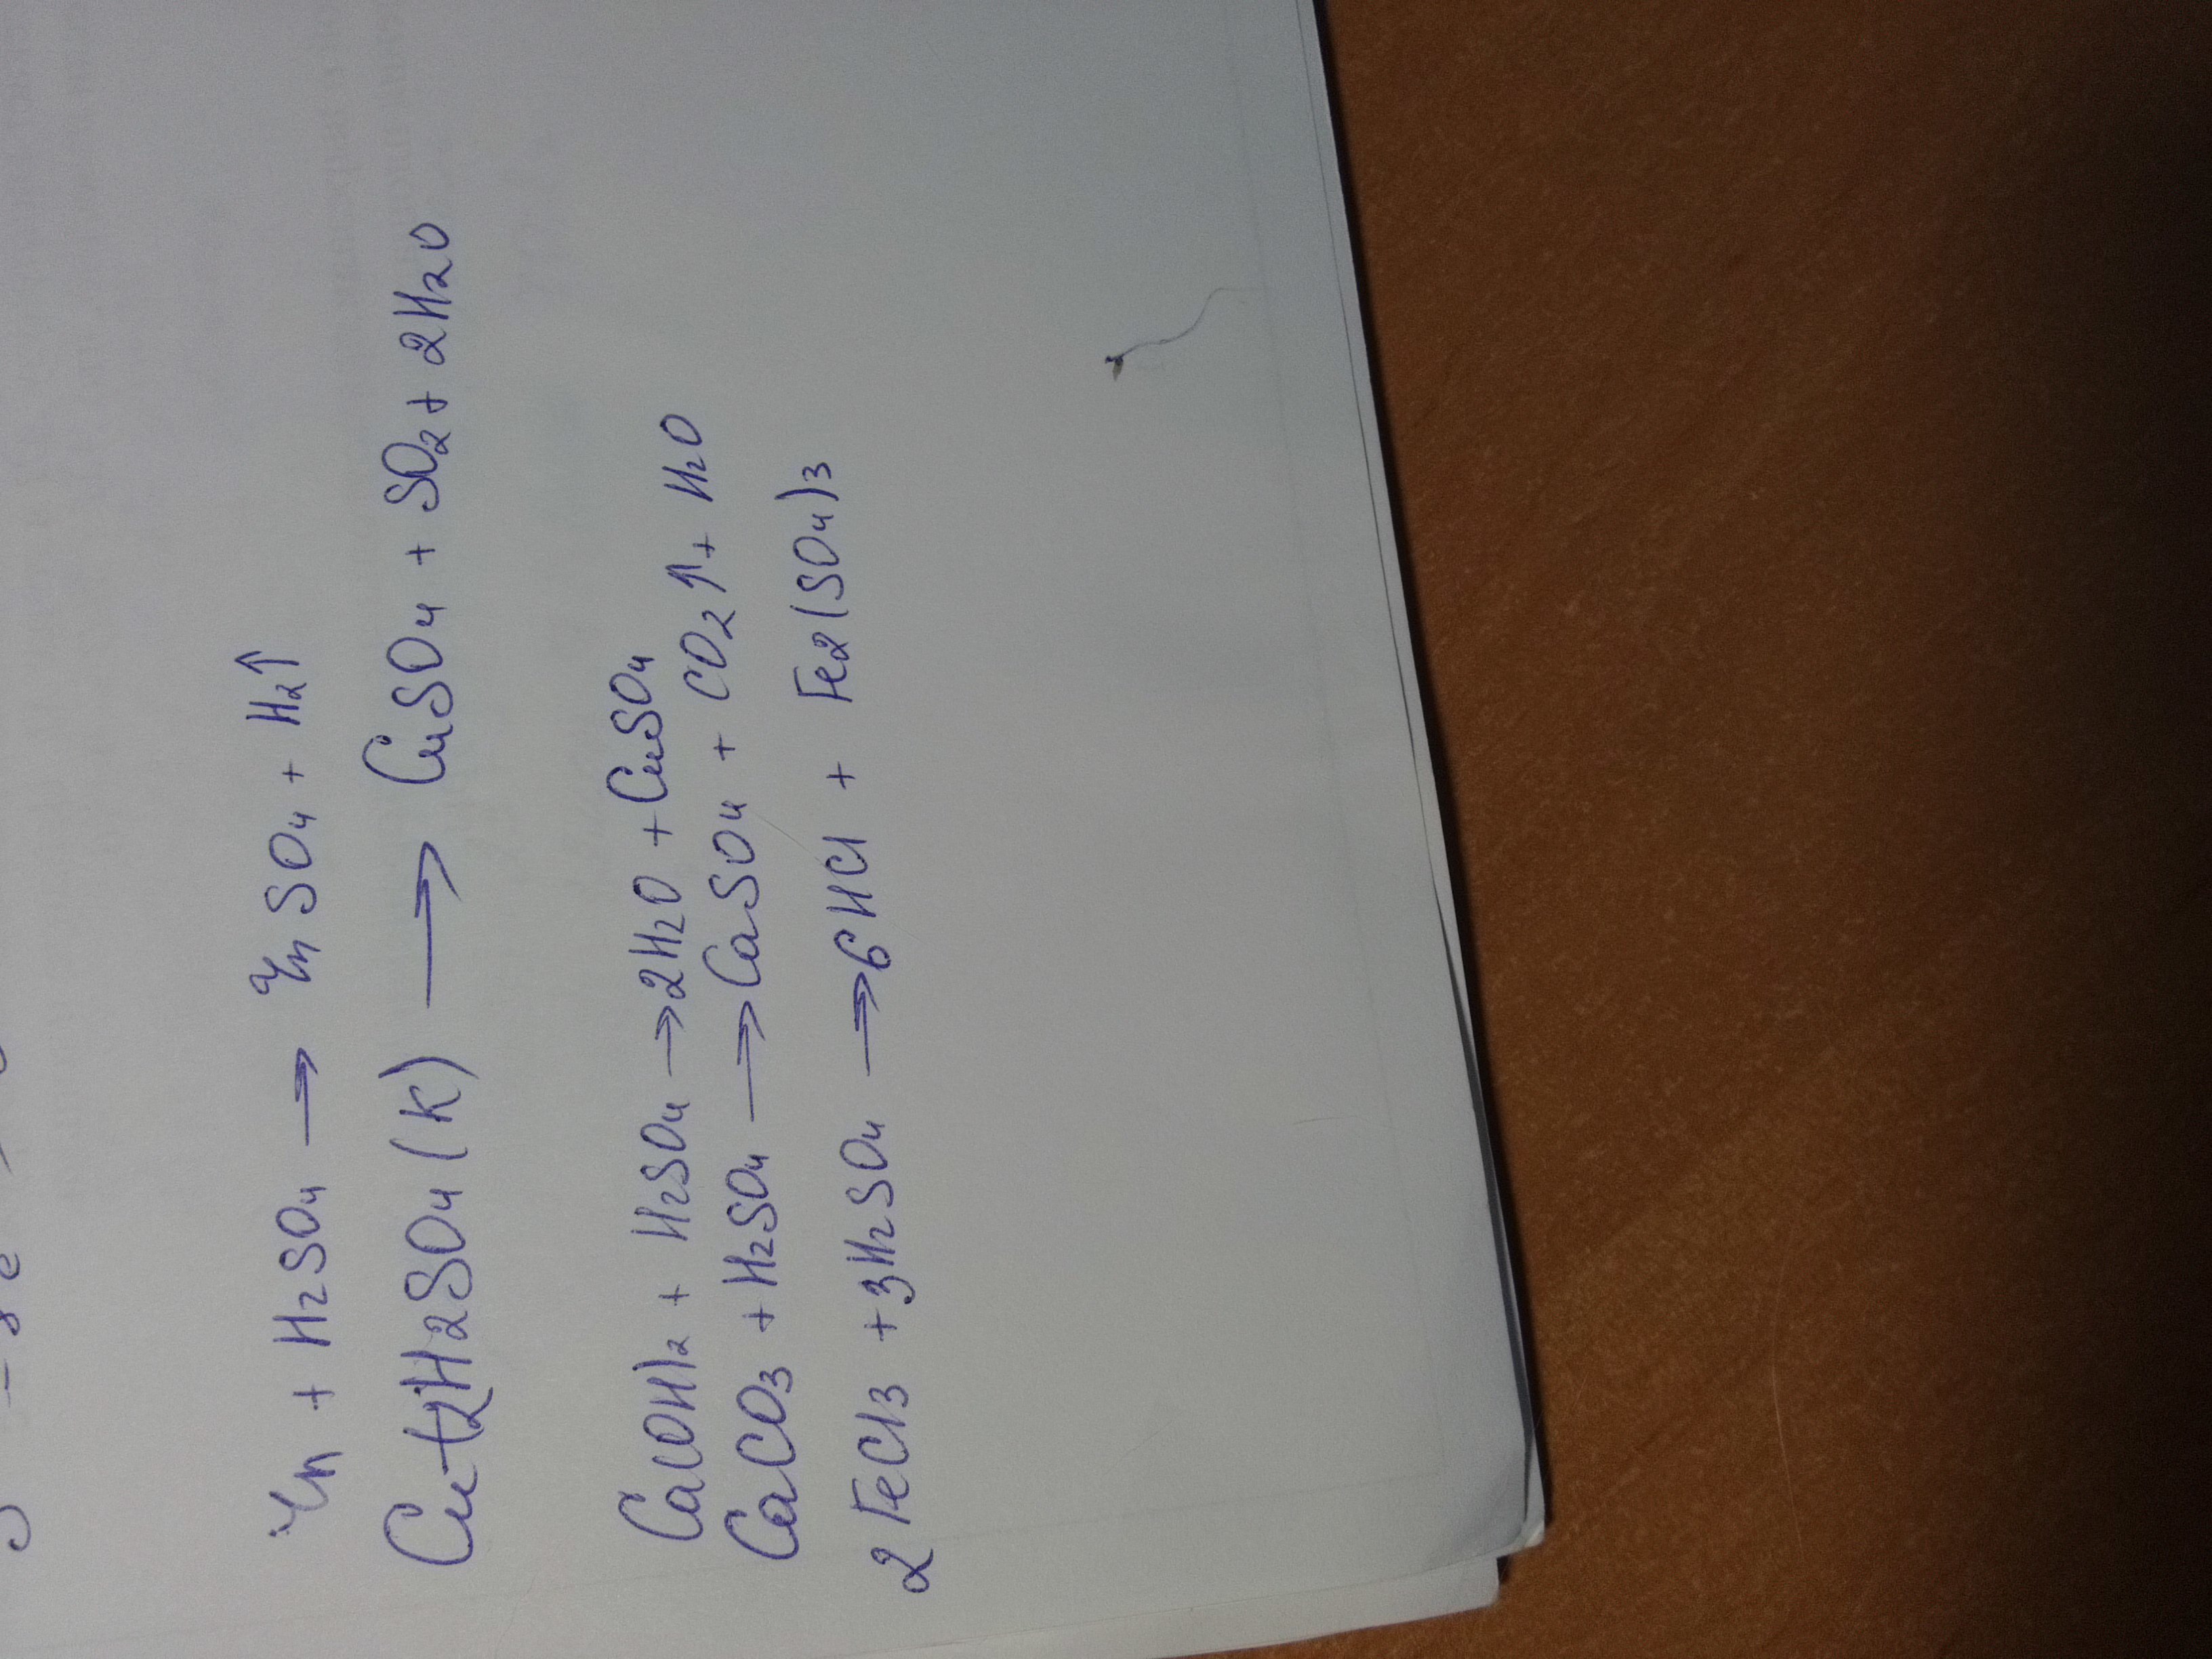 Zn + H2SO4 → ZnSO4 + H2↑
Cu+2H2SO4(K) → CuSO4 + SO2 + 2H2O
Cu(OH)2 + H2SO4 → 2H2O + CuSO4
CaCO3 + H2SO4 → CaSO4 + CO2↑ + H2O
2FeCl3 + 3H2SO4 → 6HCl + Fe2(SO4)3